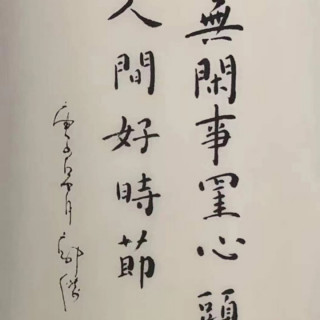 無閑事罣心頭
人間好時節